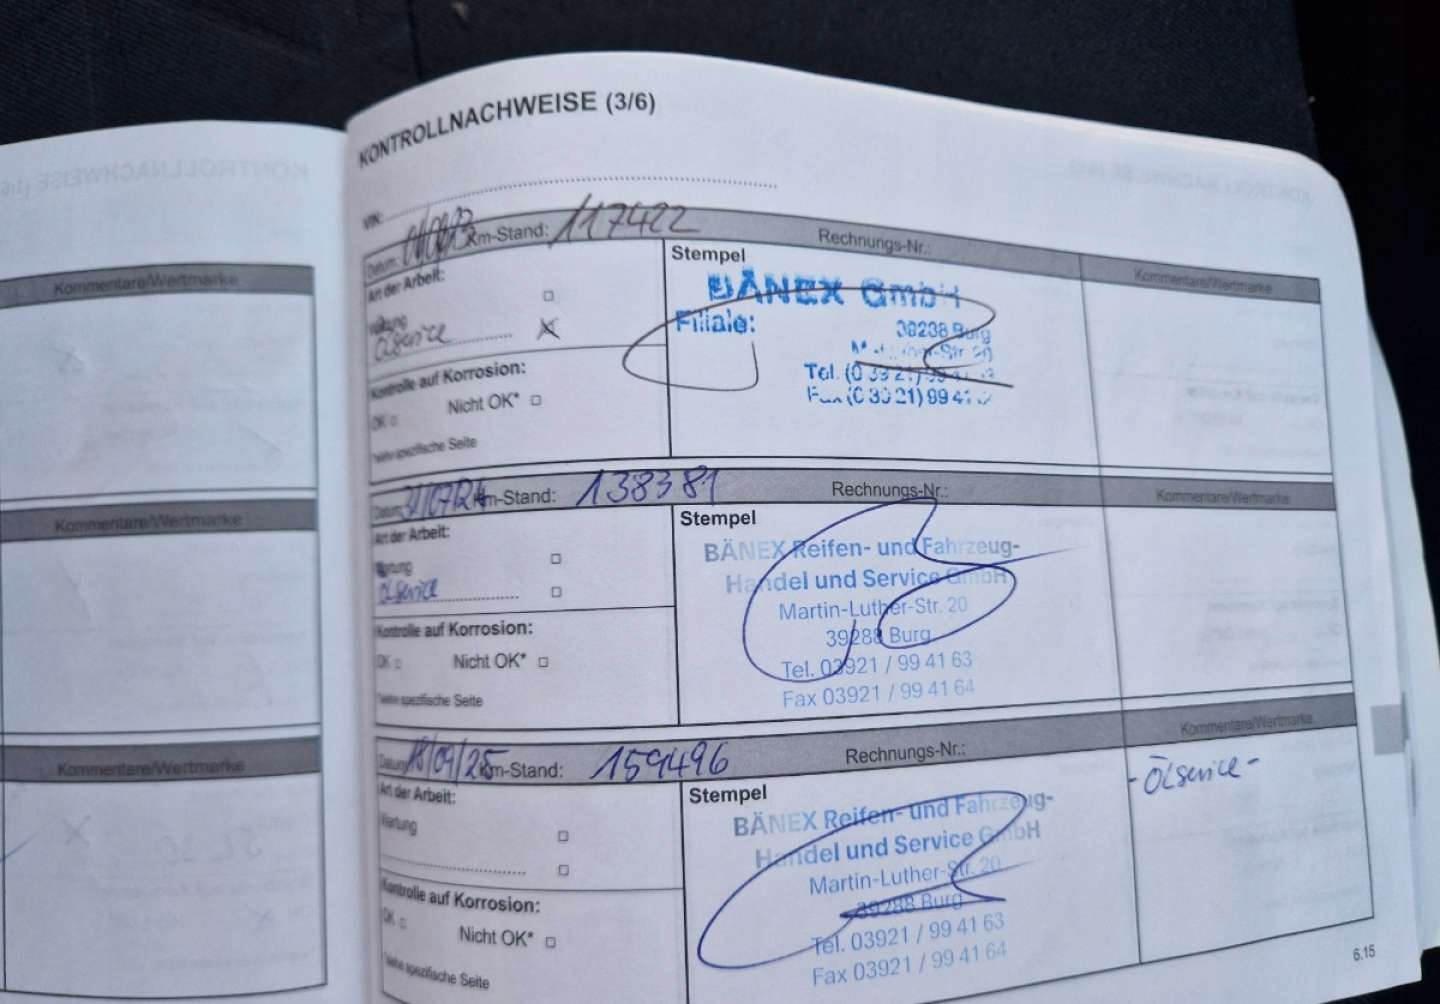 KONTROLLNACHWEISE (3/6)
VIN:
Datum: Km-Stand: 117422 Rechnungs-Nr.: Kommentare/Wertmarke
Art der Arbeit:
Wartung
Ölservice
Kontrolle auf Korrosion:
OK Nicht OK*
*siehe spezifische Seite
Stempel
BÄNEX GmbH
Filiale:
39288 Burg
Tel. (0 39 21) 99 41
Fax (0 39 21) 99 41
Datum: 31/07/24 Km-Stand: 138381 Rechnungs-Nr.: Kommentare/Wertmarke
Art der Arbeit:
Wartung
Ölservice
Kontrolle auf Korrosion:
OK Nicht OK*
*siehe spezifische Seite
Stempel
BÄNEX Reifen- und Fahrzeug-
Handel und Service GmbH
Martin-Luther-Str. 20
39288 Burg
Tel. 03921 / 99 41 63
Fax 03921 / 99 41 64
Datum: 18/09/25 Km-Stand: 159496 Rechnungs-Nr.: Kommentare/Wertmarke
Art der Arbeit:
Wartung
Kontrolle auf Korrosion:
OK Nicht OK*
*siehe spezifische Seite
Stempel
BÄNEX Reifen- und Fahrzeug-
Handel und Service GmbH
Martin-Luther-Str. 20
39288 Burg
Tel. 03921 / 99 41 63
Fax 03921 / 99 41 64
- Ölservice -
6.15
Kommentare/Wertmarke
Kommentare/Wertmarke
Kommentare/Wertmarke